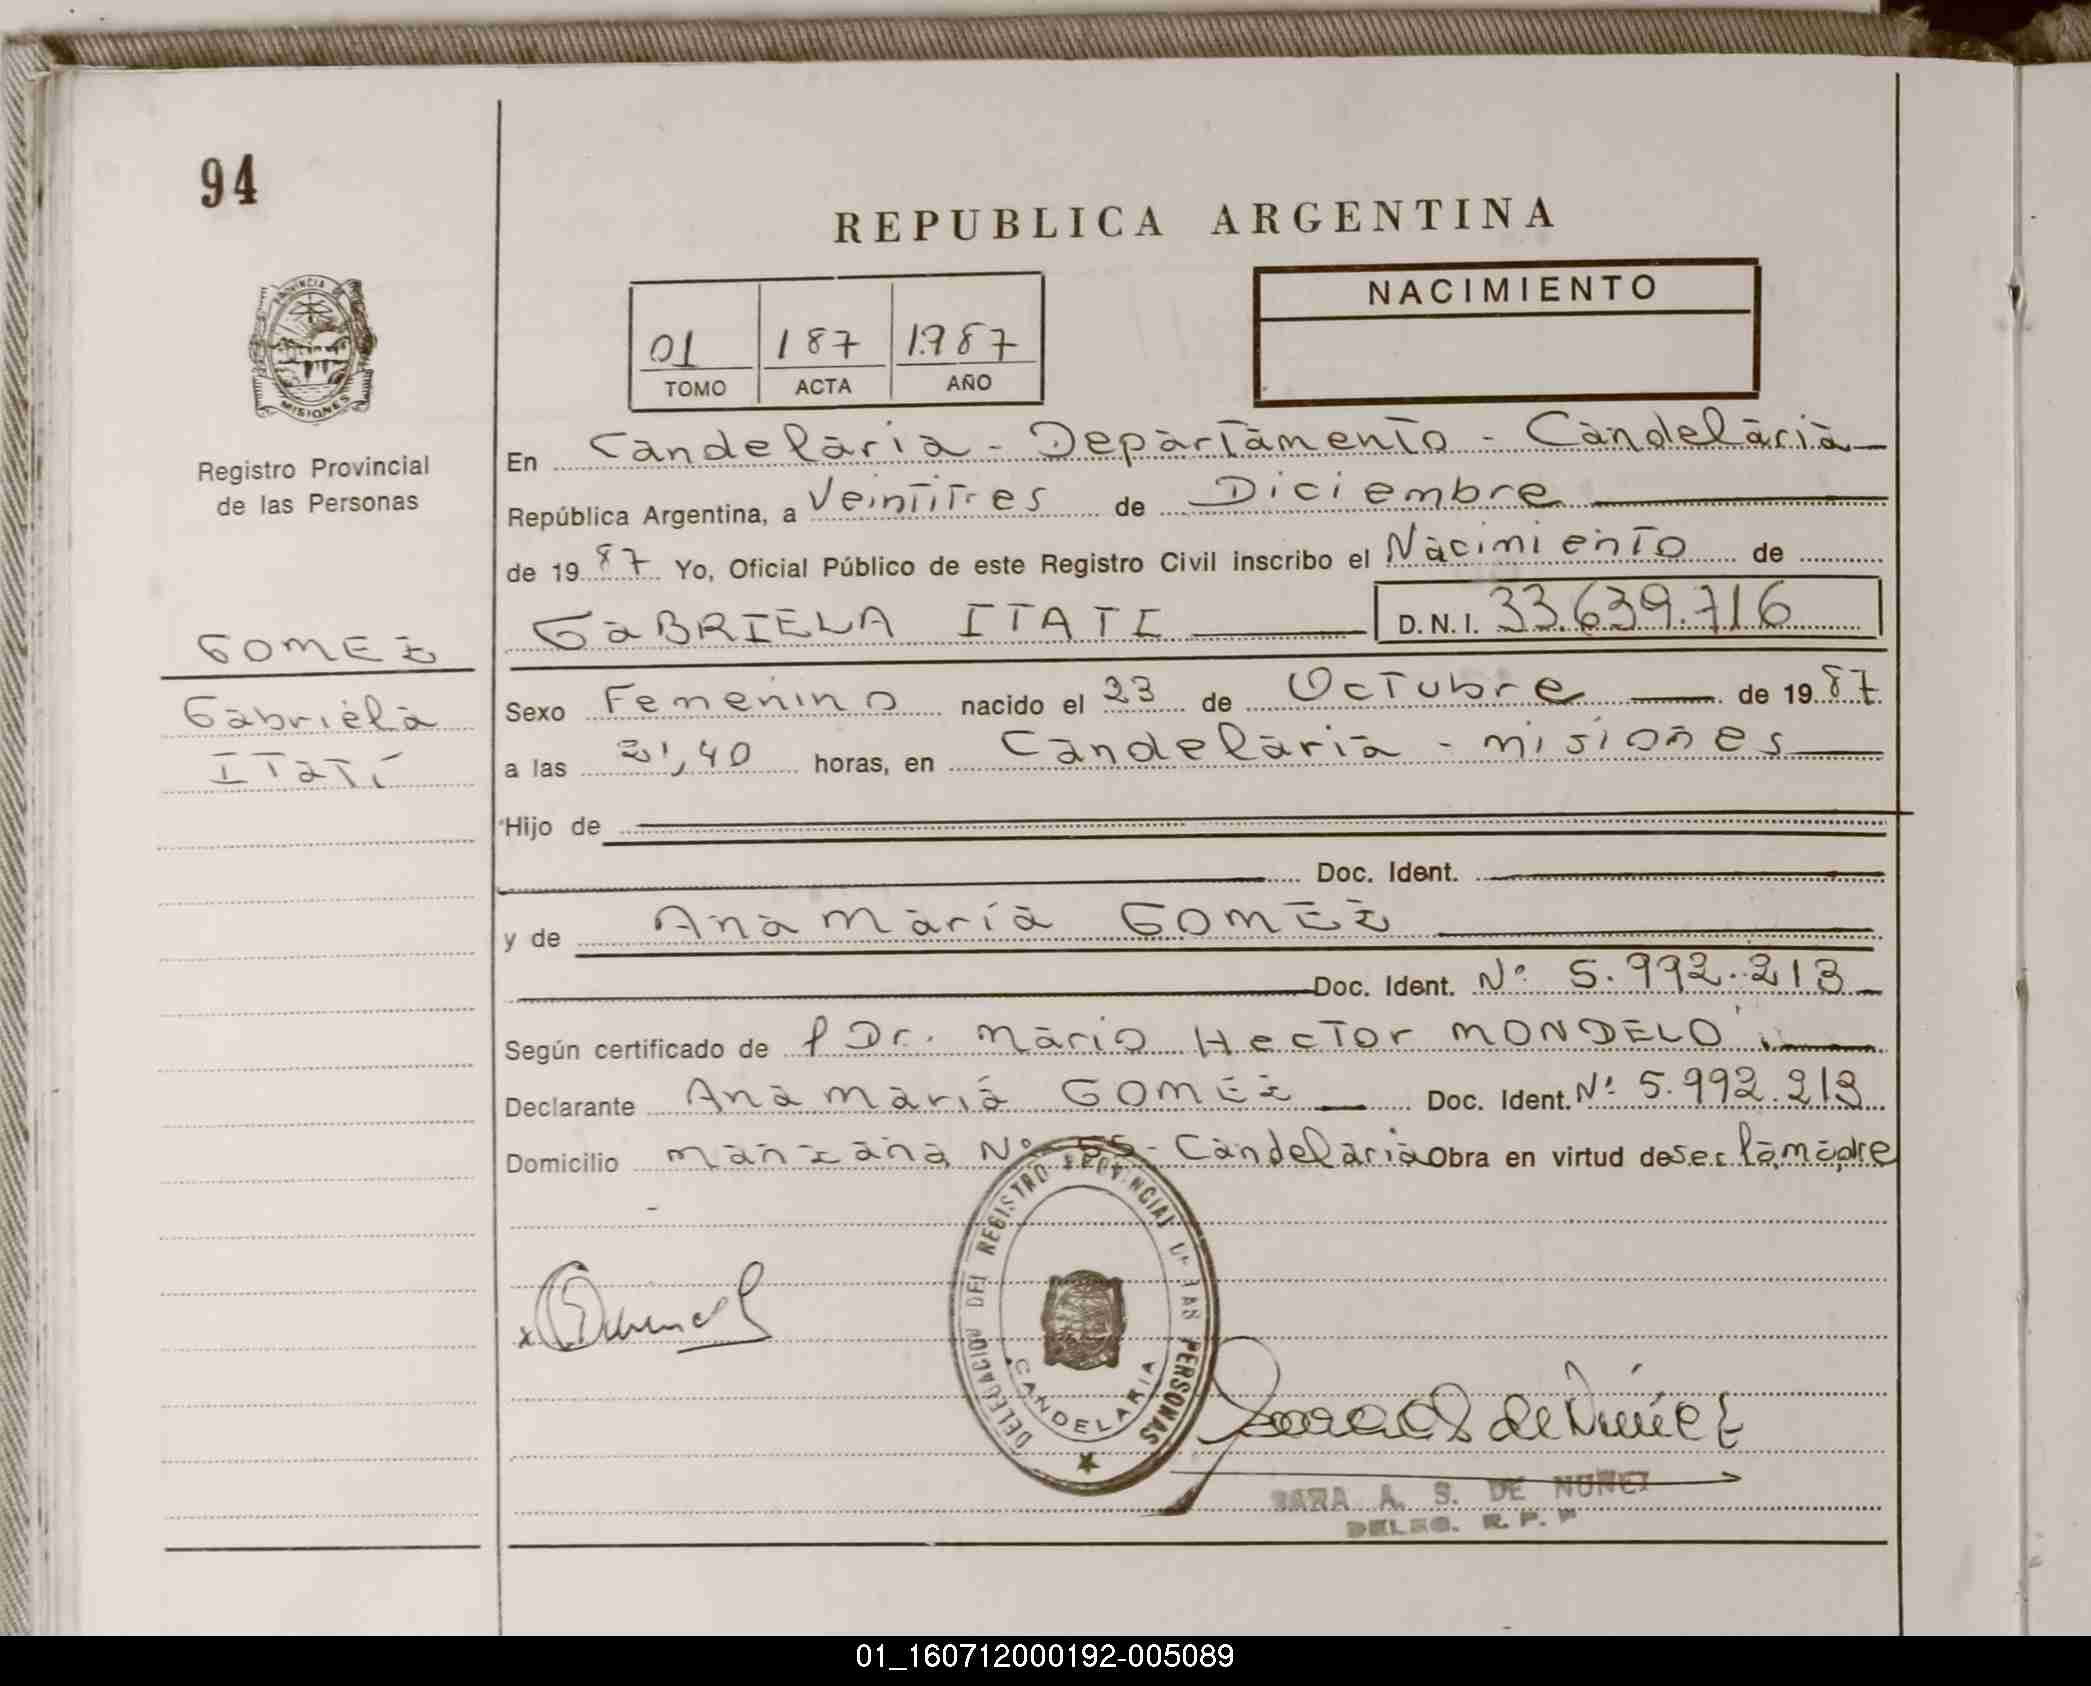 94
REPUBLICA ARGENTINA
PROVINCIA DE
MISIONES
Registro Provincial
de las Personas
01 187 1.987
TOMO ACTA AÑO
NACIMIENTO
En Candelaria - Departamento - Candelaria
República Argentina, a Veintitres de Diciembre
de 19 87 Yo, Oficial Público de este Registro Civil inscribo el Nacimiento de
GABRIELA ITATI D.N.I. 33.639.716
GOMEZ
Gabriela
ITATÍ
Sexo Femenino nacido el 23 de Octubre de 19 87
a las 21,40 horas, en Candelaria - misiones
Hijo de
Doc. Ident.
y de Ana María GOMEZ
Doc. Ident. Nº 5.992.213
Según certificado de Dr. Mario Hector MONDELO
Declarante Ana María GOMEZ Doc. Ident. Nº 5.992.213
Domicilio manzana Nº 55 - Candelaria Obra en virtud de ser la madre
DELEGACION DEL REGISTRO PROVINCIAL DE LAS PERSONAS
CANDELARIA
Sara A S de Núñez
SARA A. S. DE NUÑEZ
DELEG. R. P. P
01_160712000192-005089